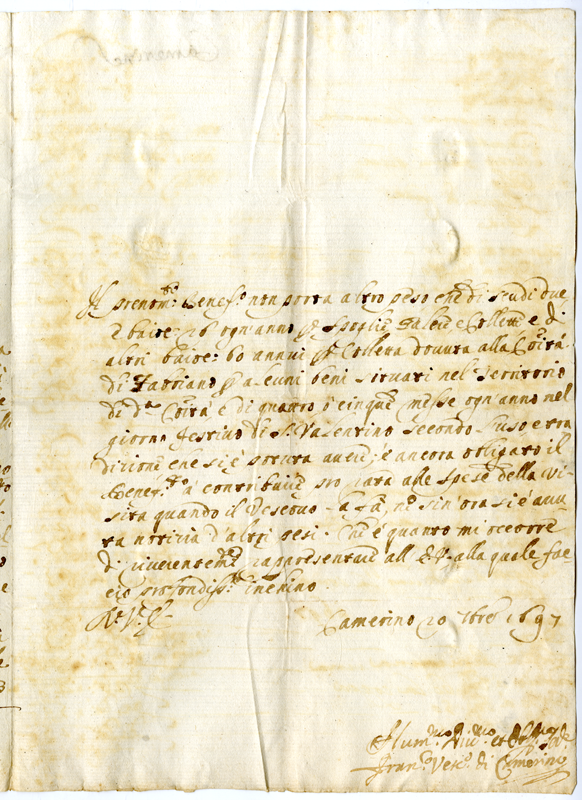 Il prenom.to Benef.o non porta altro peso che di scudi due
e baioc: 26 ogn'anno p Spoglij Galere e Collette e di
altri baioc: 60 annui p Colletta dovuta alla Co'ità
di Fabriano p alcuni beni situati nel Territorio
di d.a Co'ità e di quattro ò cinque messe ogn'anno nel
giorno festivo di S. Valentino secondo l'uso e tra
dizione che si è potuta avere; è ancora obligato il
Benef.to à contribuire pro rata alle spese della vi
sita quando il Vescovo la fà, nè sin'ora si è avu
ta notizia d'altri pesi. Che è quanto mi occorre
di riverentem.te rappresentare all' E.V. alla quale fac
cio profondiss.mo inchino.
Di V. E.
Camerino 20 7bre 1697
Hum.mo Div.mo et Obl.mo
Fran.o Vesc.o di Camerino